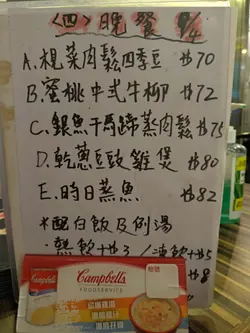 〈四〉晚餐 8/4
A.欖菜肉鬆四季豆 $70
B.蜜桃中式牛柳 $72
C.銀魚干馬蹄蒸肉鬆 $75
D.乾蔥豆豉雞煲 $80
E.時日蒸魚 $82
*配白飯及例湯
熱飲+$3/凍飲+$5
$8
Campbell's
Campbell's
FOODSERVICE